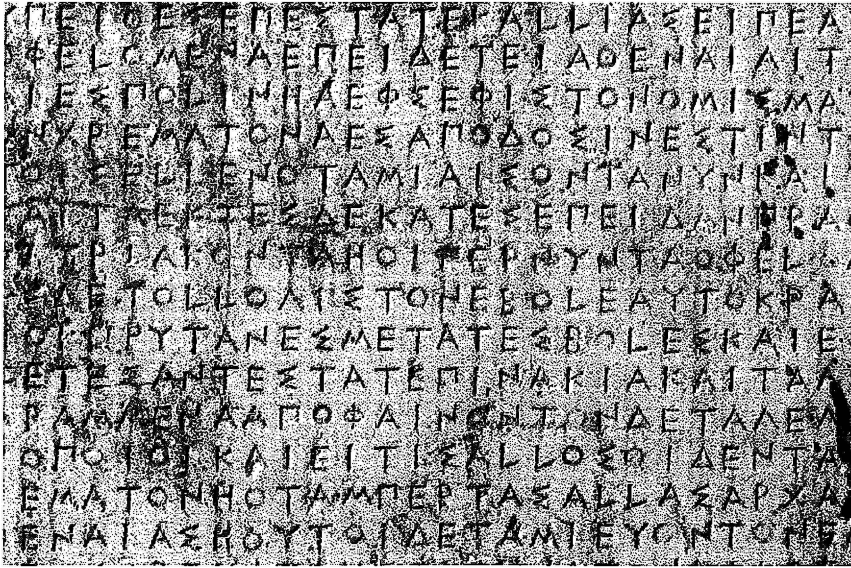 ΠΕΙΘΕΣΕΠΕΣΤΑΤΕΚΑΛΛΙΑΣΕΙΠΕΑ
ΟΦΕΛΟΜΕΝΑΕΠΕΙΔΕΤΕΙΑΘΕΝΑΙΑΙΤ
ΙΕΣΠΟΛΙΝΗΑΕΦΣΕΦΙΣΤΟΝΟΜΙΣΜΑ
ΝΧΡΕΜΑΤΟΝΑΕΣΑΠΟΔΟΣΙΝΕΣΤΙΝΤ
ΟΙΣΕΛΛΕΝΟΤΑΜΙΑΙΣΟΝΤΑΝΥΝΚΑΙ
ΑΙΤΑΕΚΤΕΣΔΕΚΑΤΕΣΕΠΕΙΔΑΝΠΡΑ
ΙΤΡΙΑΚΟΝΤΑΗΟΙΠΕΡΝΥΝΤΑΟΦΕΛ
ΣΔΕΤΟΛΛΟΓΙΣΤΟΝΕΒΟΛΕΑΥΤΟΚΡΑ
ΟΙΠΡΥΤΑΝΕΣΜΕΤΑΤΕΣΒΟΛΕΣΚΑΙΕ
ΕΤΕΣΑΝΤΕΣΤΑΤΕΠΙΝΑΚΙΑΚΑΙΤΑΓ
ΡΑΜΜΕΝΑΑΠΟΦΑΙΝΟΝΤΟΝΔΕΤΑΓΕΓ
ΟΠΟΙΟΙΚΑΙΕΙΤΙΣΑΛΛΟΣΟΙΔΕΝΤΑ
ΕΜΑΤΟΝΗΟΤΑΜΠΕΡΤΑΣΑΛΛΑΣΑΡΧΑ
ΕΝΑΙΑΣΗΟΥΤΟΙΔΕΤΑΜΙΕΥΟΝΤΟΝΕ